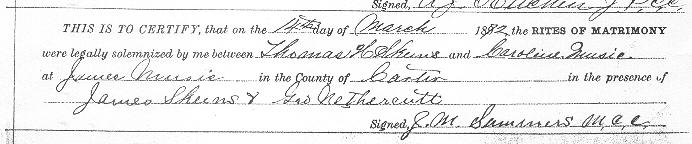 Signed,
THIS IS TO CERTIFY, that on the 14th day of March 1882, the RITES OF MATRIMONY
were legally solemnized by me between Thomas H Skeins and Caroline Music.
at James Music in the County of Carter in the presence of
James Skeins & Geo Nethercutt
Signed, J. M. Summers M.C.C.